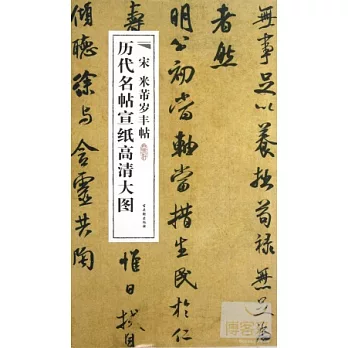 無事足以養拙苟祿無足
者然
明公初當軸當措生民於仁
壽
惟日
傾聽徐與含靈共陶
宋 米芾岁丰帖
历代名帖宣纸高清大图
博客來